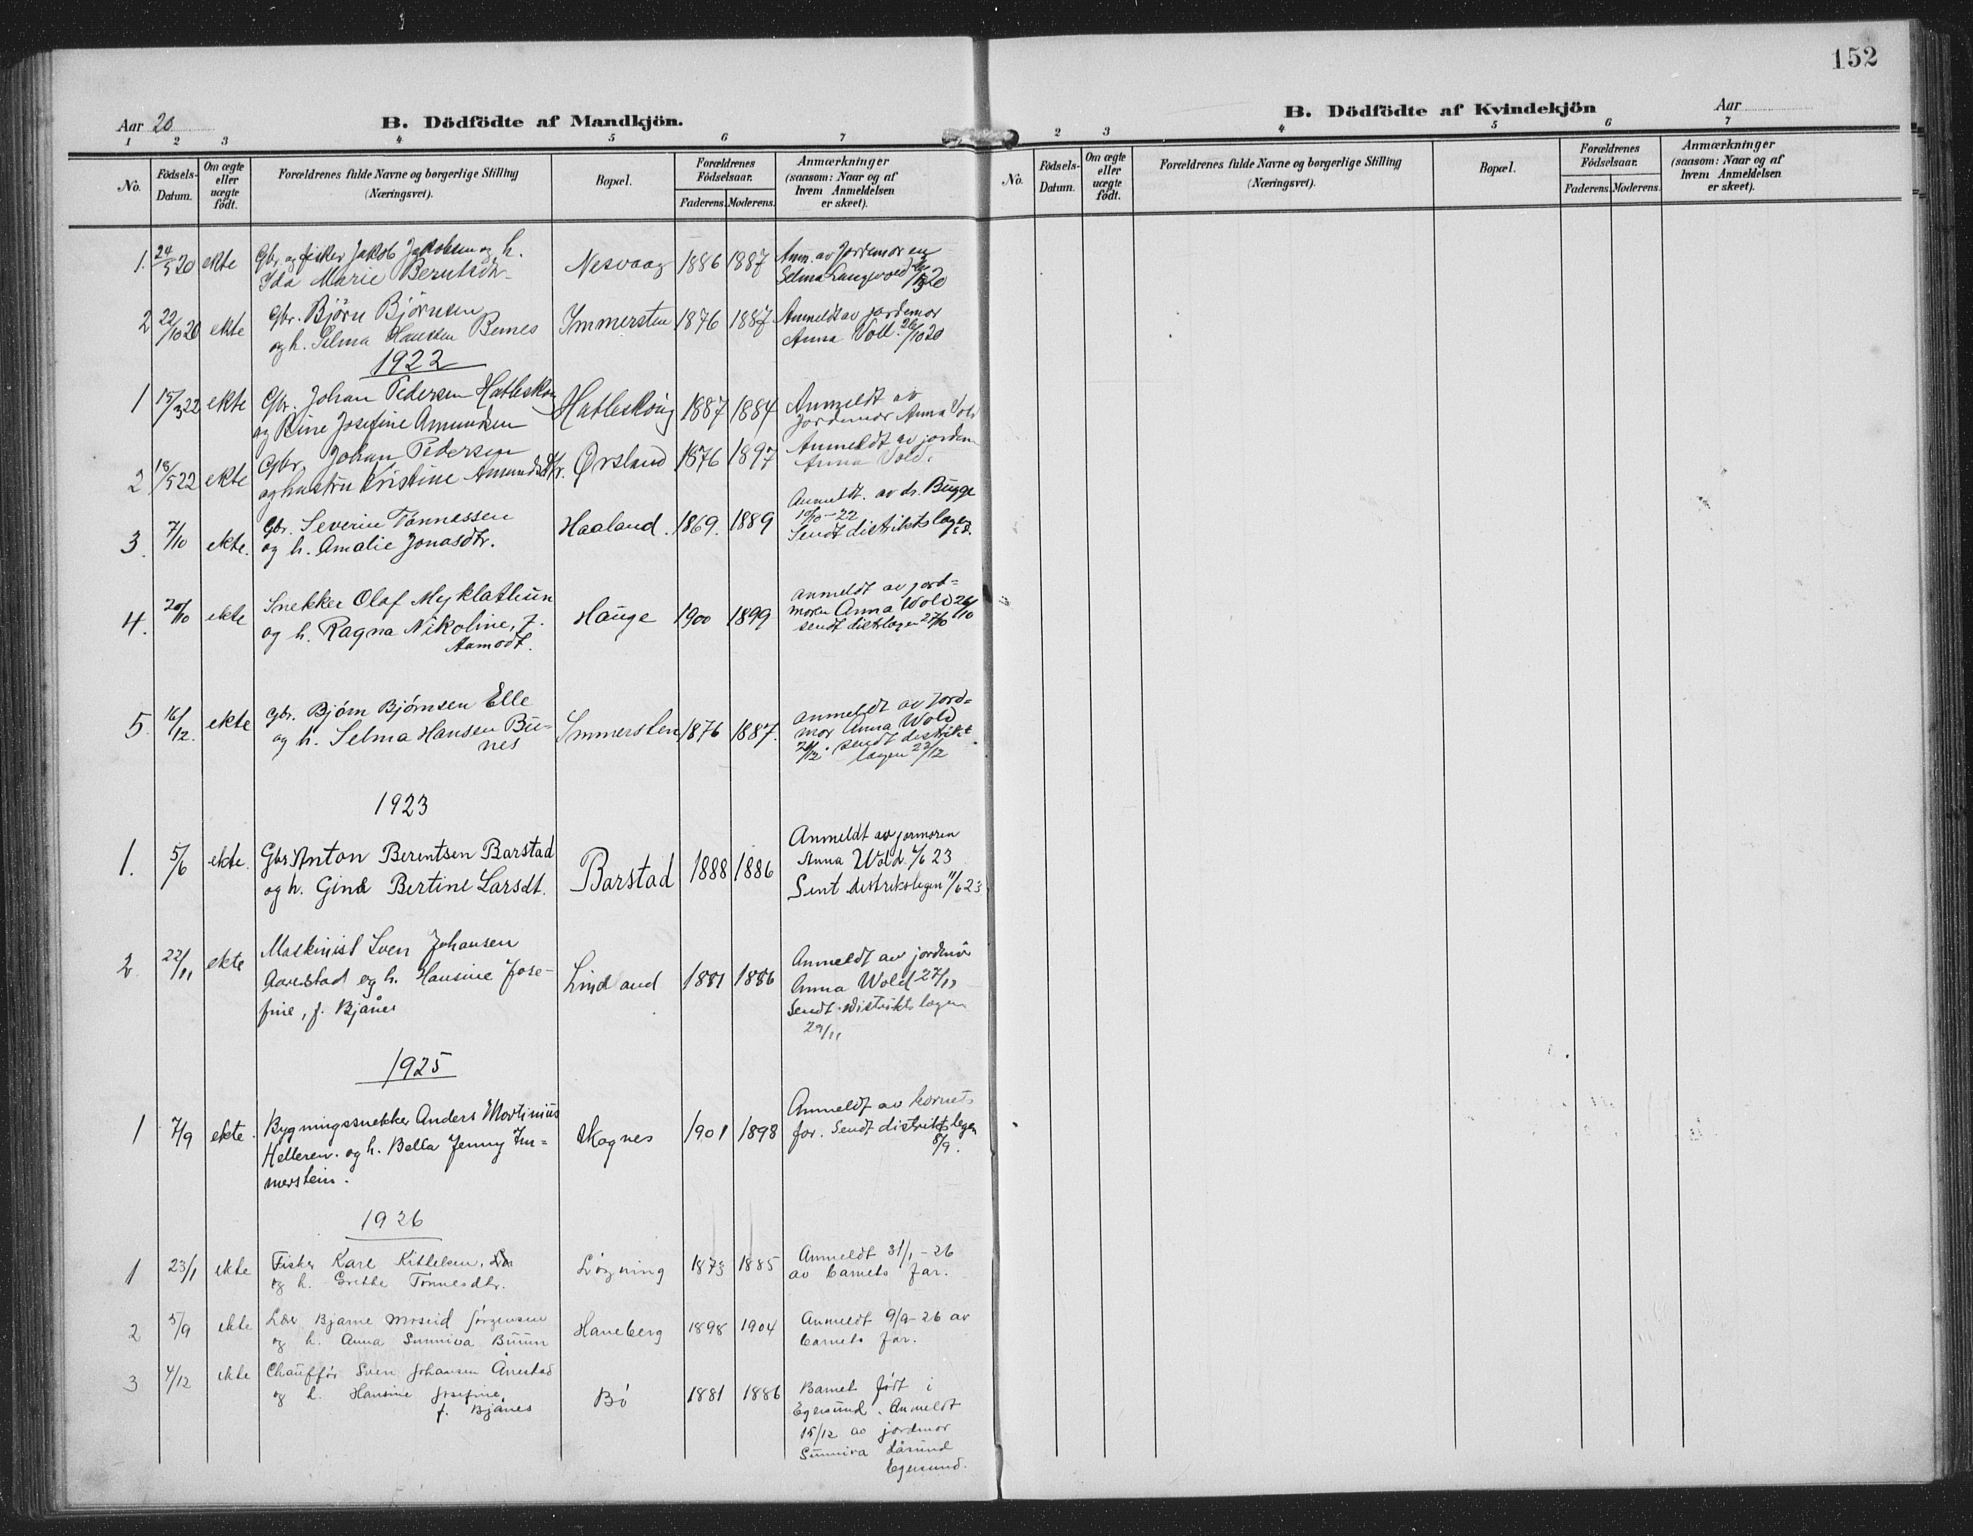 152
Aar 20
B. Dödfödte af Mandkjön.
1 2 3 4 5 6 7
No.
Födsels-Datum.
Om ægte eller uægte födt.
Forældrenes fulde Navne og borgerlige Stilling (Næringsvei).
Bopæl.
Forældrenes Födselsaar.
Faderens. Moderens.
Anmærkninger (saasom: Naar og af hvem Anmeldelsen er skeet).
1. 24/5 20 ekte Gbr. og fisker Jakob Jakobsen og h. Nesvaag 1886 1887 Anm. av Jordemoren
Ida Marie Berntsdtr. Selma Langvold 20
2 22/10 20 ekte Gbr. Bjørn Bjørnsen Immersten 1876 1887 Anmeldt av jordemor
og h. Selma Hansen Benes Anna Voll 26/10 20
1922
1 15/3 22 ekte Gbr. Johan Pedersen Hatleskog Hatleskog 1887 1884 Anmeldt av
og Bine Josefine Amundsen Jordemor Anna Vold
2 18/5 22 ekte Gbr. Johan Pedersen Ørsland 1876 1897 Anmeldt av jordem
og hustru Kristine Amundsdtr. Anna Vold.
3. 7/10 ekte. Gbr. Severin Tønnessen Haaland. 1869. 1889 Anmeldt. av dr. Bugge
og h. Amalie Jonasdtr. 10/10-22
Sendt distriktslagen
4. 20/10 ekte Snekker Olaf Myklathun Hauge 1900 1899 anmeldt av jord-
og h. Ragna Nikoline, f. moren Anna Wold 26/10
Aamodt. sendt distrlagen 27/10
5. 16/12. ekte Gbr. Bjørn Bjørnsen Elle Immersten 1876 1887. anmeldt av Jord-
og h. Selma Hansen Bu- mor Anna Wold
nes 20/12. sendt distrikt
lagen 22/12
1923
1. 5/6 ekte. Gbr Anton Berentsen Barstad Barstad 1888 1886 Anmeldt av jormoren
og h. Gine Bertine Larsdt. Anna Wold 23
Sent distrikslegen 11/6 23
2. 22/11 ekte Maskinist Sven Johansen Lindland 1881 1886 Anmeldt av jordmor
Aarestad og h. Hansine Jose- Anna Wold 27/11
fine, f. Bjånes Sendt distriktslagen
29/11
1925
1 7/9 ekte. Bygningssnekker Anders Mortinius Skognes 1901 1898 Anmeldt av barnets
Helleren. og h. Bella Jenny Im- far. Sendt distriktslegen
merstein. 8/9.
1926
1 23/1 ekte Fisker Karl Kittelsen, Løgning 1873 1885 Anmeldt 31/1-26
og h. Grethe Tønnesdtr. av barnets far.
2 5/9 ekte Lær Bjarne Moseid Jørgensen Haneberg 1898 1904 Anmeldt 9/9-26 av
og h. Anna Sunniva Buun barnets far.
3 4/12 ekte Chauffør Sven Johansen Årestad Bø 1881 1886 Barnet født i
og h. Hansine Josefine, Egersund. Anmeldt
f. Bjånes 15/12 av jordmor
Sunniva Låsund
Egersund.
B. Dödfödte af Kvindekjön
Aar
2 3 4 5 6 7
No.
Födsels-Datum.
Om ægte eller uægte födt.
Forældrenes fulde Navne og borgerlige Stilling (Næringsvei).
Bopæl.
Forældrenes Födselsaar.
Faderens. Moderens.
Anmærkninger (saasom: Naar og af hvem Anmeldelsen er skeet).